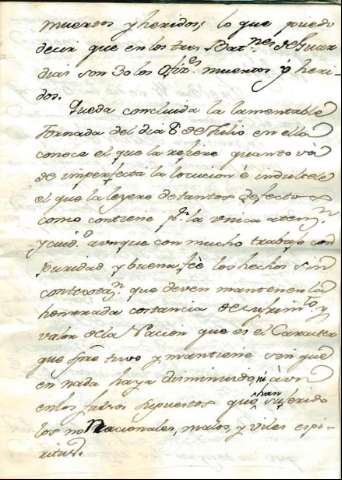 muertos y heridos; lo que puedo
decir que en los tres Bat.nes de Guar
dias son 30 los Ofiz.s muertos y heri-
dos.
Queda concluida la lamentable
Jornada del dia 8 de Julio en ella
conoce el que la refiere quanto vá
de imperfecta la locucion e indirecta
el que la leyere de tantos defectos
como contiene p.r la unica aten.n
y cuid.o aunque con mucho trabajo con
puridad y buena feè los hechos sin
contextaz.n que deven mantener la
honrrada constancia de sufrim.to y
valor de la Nacion que es el Caracter
que tuvo y mantiene sin que
en nada haya disminuido, ni aun
en los falsos supuestos que han sugerido
los no Nacionales, malos y viles espi-
ritus.